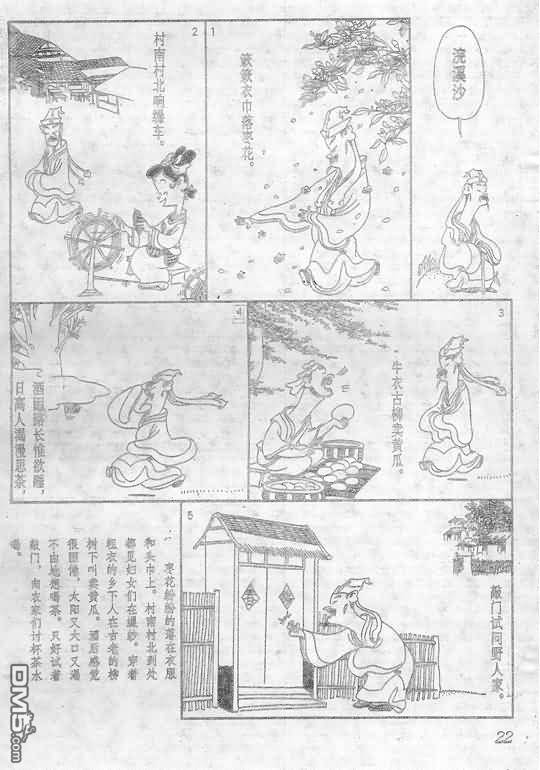 浣溪沙
1
簌簌衣巾落枣花。
2
村南村北响缫车。
3
牛衣古柳卖黄瓜。
4
酒困路长惟欲睡，
日高人渴漫思茶，
5
敲门试问野人家。
枣花纷纷的落在衣服
和头巾上。村南村北到处
都见妇女们在缫纱。穿着
粗衣的乡下人在古老的柳
树下叫卖黄瓜。酒后感觉
很困倦，太阳又大口又渴
不由地想喝茶。只好试着
敲门，向农家们讨杯茶水
喝。
22
DM5.com